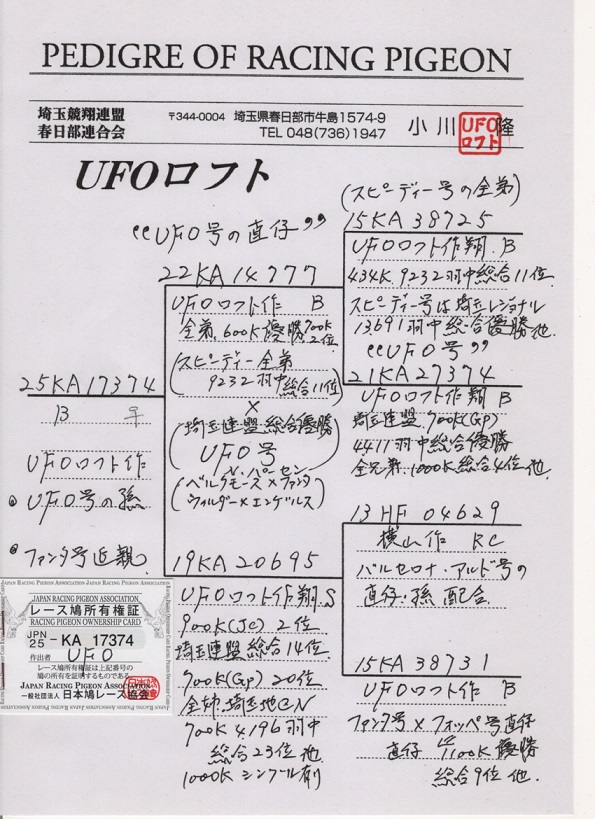 PEDIGRE OF RACING PIGEON
埼玉競翔連盟
春日部連合会
〒344-0004 埼玉県春日部市牛島1574-9
TEL 048(736)1947
小川 隆
UFOロフト
UFOロフト
“UFO号の直仔”
(スピーディー号の全弟)
15KA 38725
UFOロフト作翔 B
434K. 9232羽中総合11位
スピーディー号は埼玉レジョナル
13691羽中総合優勝他
22KA 14777
UFOロフト作 B
全弟.600K優勝 700K 2位
(スピーディー全弟
9232羽中総合11位)
×
(埼玉連盟総合優勝
UFO号)
V.パーセン
(ベルクモース×ファンタ
ウィルダー×エンゲルス)
“UFO号”
21KA 27374
UFOロフト作翔 B
埼玉連盟.700K(GP)
4411羽中総合優勝
全兄弟.1000K.総合4位 他
25KA17374
B ♀
UFOロフト作
UFO号の孫
ファンタ号近親
13HF 04629
横山作 RC
バルセロナ・アルド号の
直仔・孫配合
19KA20695
UFOロフト作翔.S
900K(JC) 2位
埼玉連盟総合14位
900K(GP) 20位
全姉.埼玉地区N
700K 4196羽中
総合23位 他
1000K シングル有
15KA 38731
UFOロフト作 B
ファンタ号×フォッペ号直仔
直仔 1100K優勝
総合9位 他.
JAPAN RACING PIGEON ASSOCIATION
レース鳩所有権証
RACING PIGEON OWNERSHIP CARD
JPN
25 - KA 17374
作出者 UFO
レース鳩所有権証は上記番号の
鳩の所有を証明するものである
JAPAN RACING PIGEON ASSOCIATION
一般社団法人 日本鳩レース協会